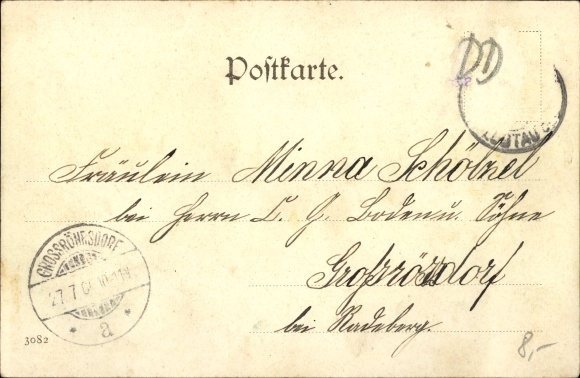 DD
Postkarte.
ZITTAU
Fräulein Minna Schölzel
bei Herrn C. G. Boden u. Söhne
Großröhrsdorf
bei Radeberg.
GROSSRÖHRSDORF
27.7.
a
3082
8,-